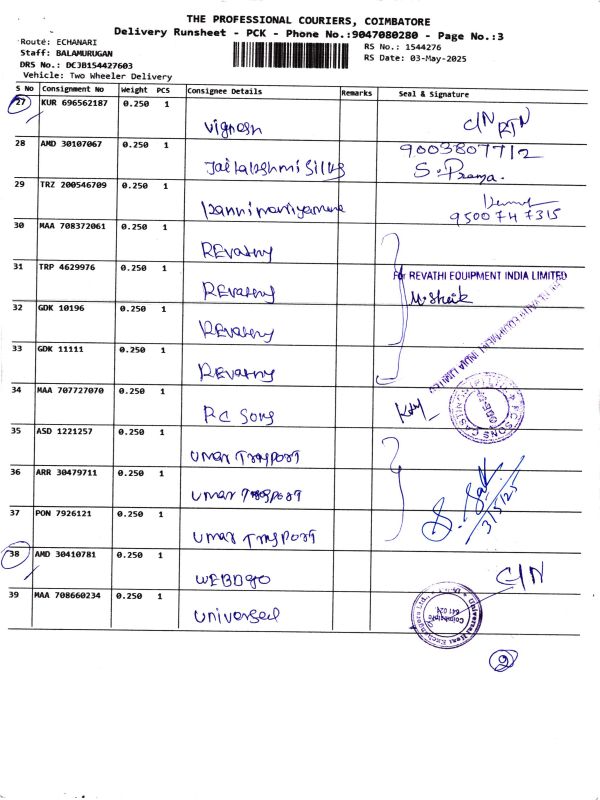 THE PROFESSIONAL COURIERS, COIMBATORE
Delivery Runsheet - PCK - Phone No.:9047080280 - Page No.:3
Route: ECHANARI
RS No.: 1544276
Staff: BALAMURUGAN
RS Date: 03-May-2025
DRS No.: DCJB154427603
Vehicle: Two Wheeler Delivery
S No Consignment No Weight PCS Consignee Details Remarks Seal & Signature
27 KUR 696562187 0.250 1
Vignesh C/N RTN
28 AMD 30107067 0.250 1 9003807712
Jailalakshmi Silks S. Prama.
29 TRZ 200546709 0.250 1
9500747315
30 MAA 708372061 0.250 1
REvathy
31 TRP 4629976 0.250 1 For REVATHI EQUIPMENT INDIA LIMITED
REvathy
32 GDK 10196 0.250 1
REvathy
REVATHI EQUIPMENT INDIA LIMITED
33 GDK 11111 0.250 1
REvathy
34 MAA 707727070 0.250 1
RC Sons
35 ASD 1221257 0.250 1
Umar Trnsport
36 ARR 30479711 0.250 1
Umar Trnsport
3/5/25
37 PON 7926121 0.250 1
Umar Trnsport
38 AMD 30410781 0.250 1
WEBDgo C/N
39 MAA 708660234 0.250 1
Universel
Coimbatore
641 021
2